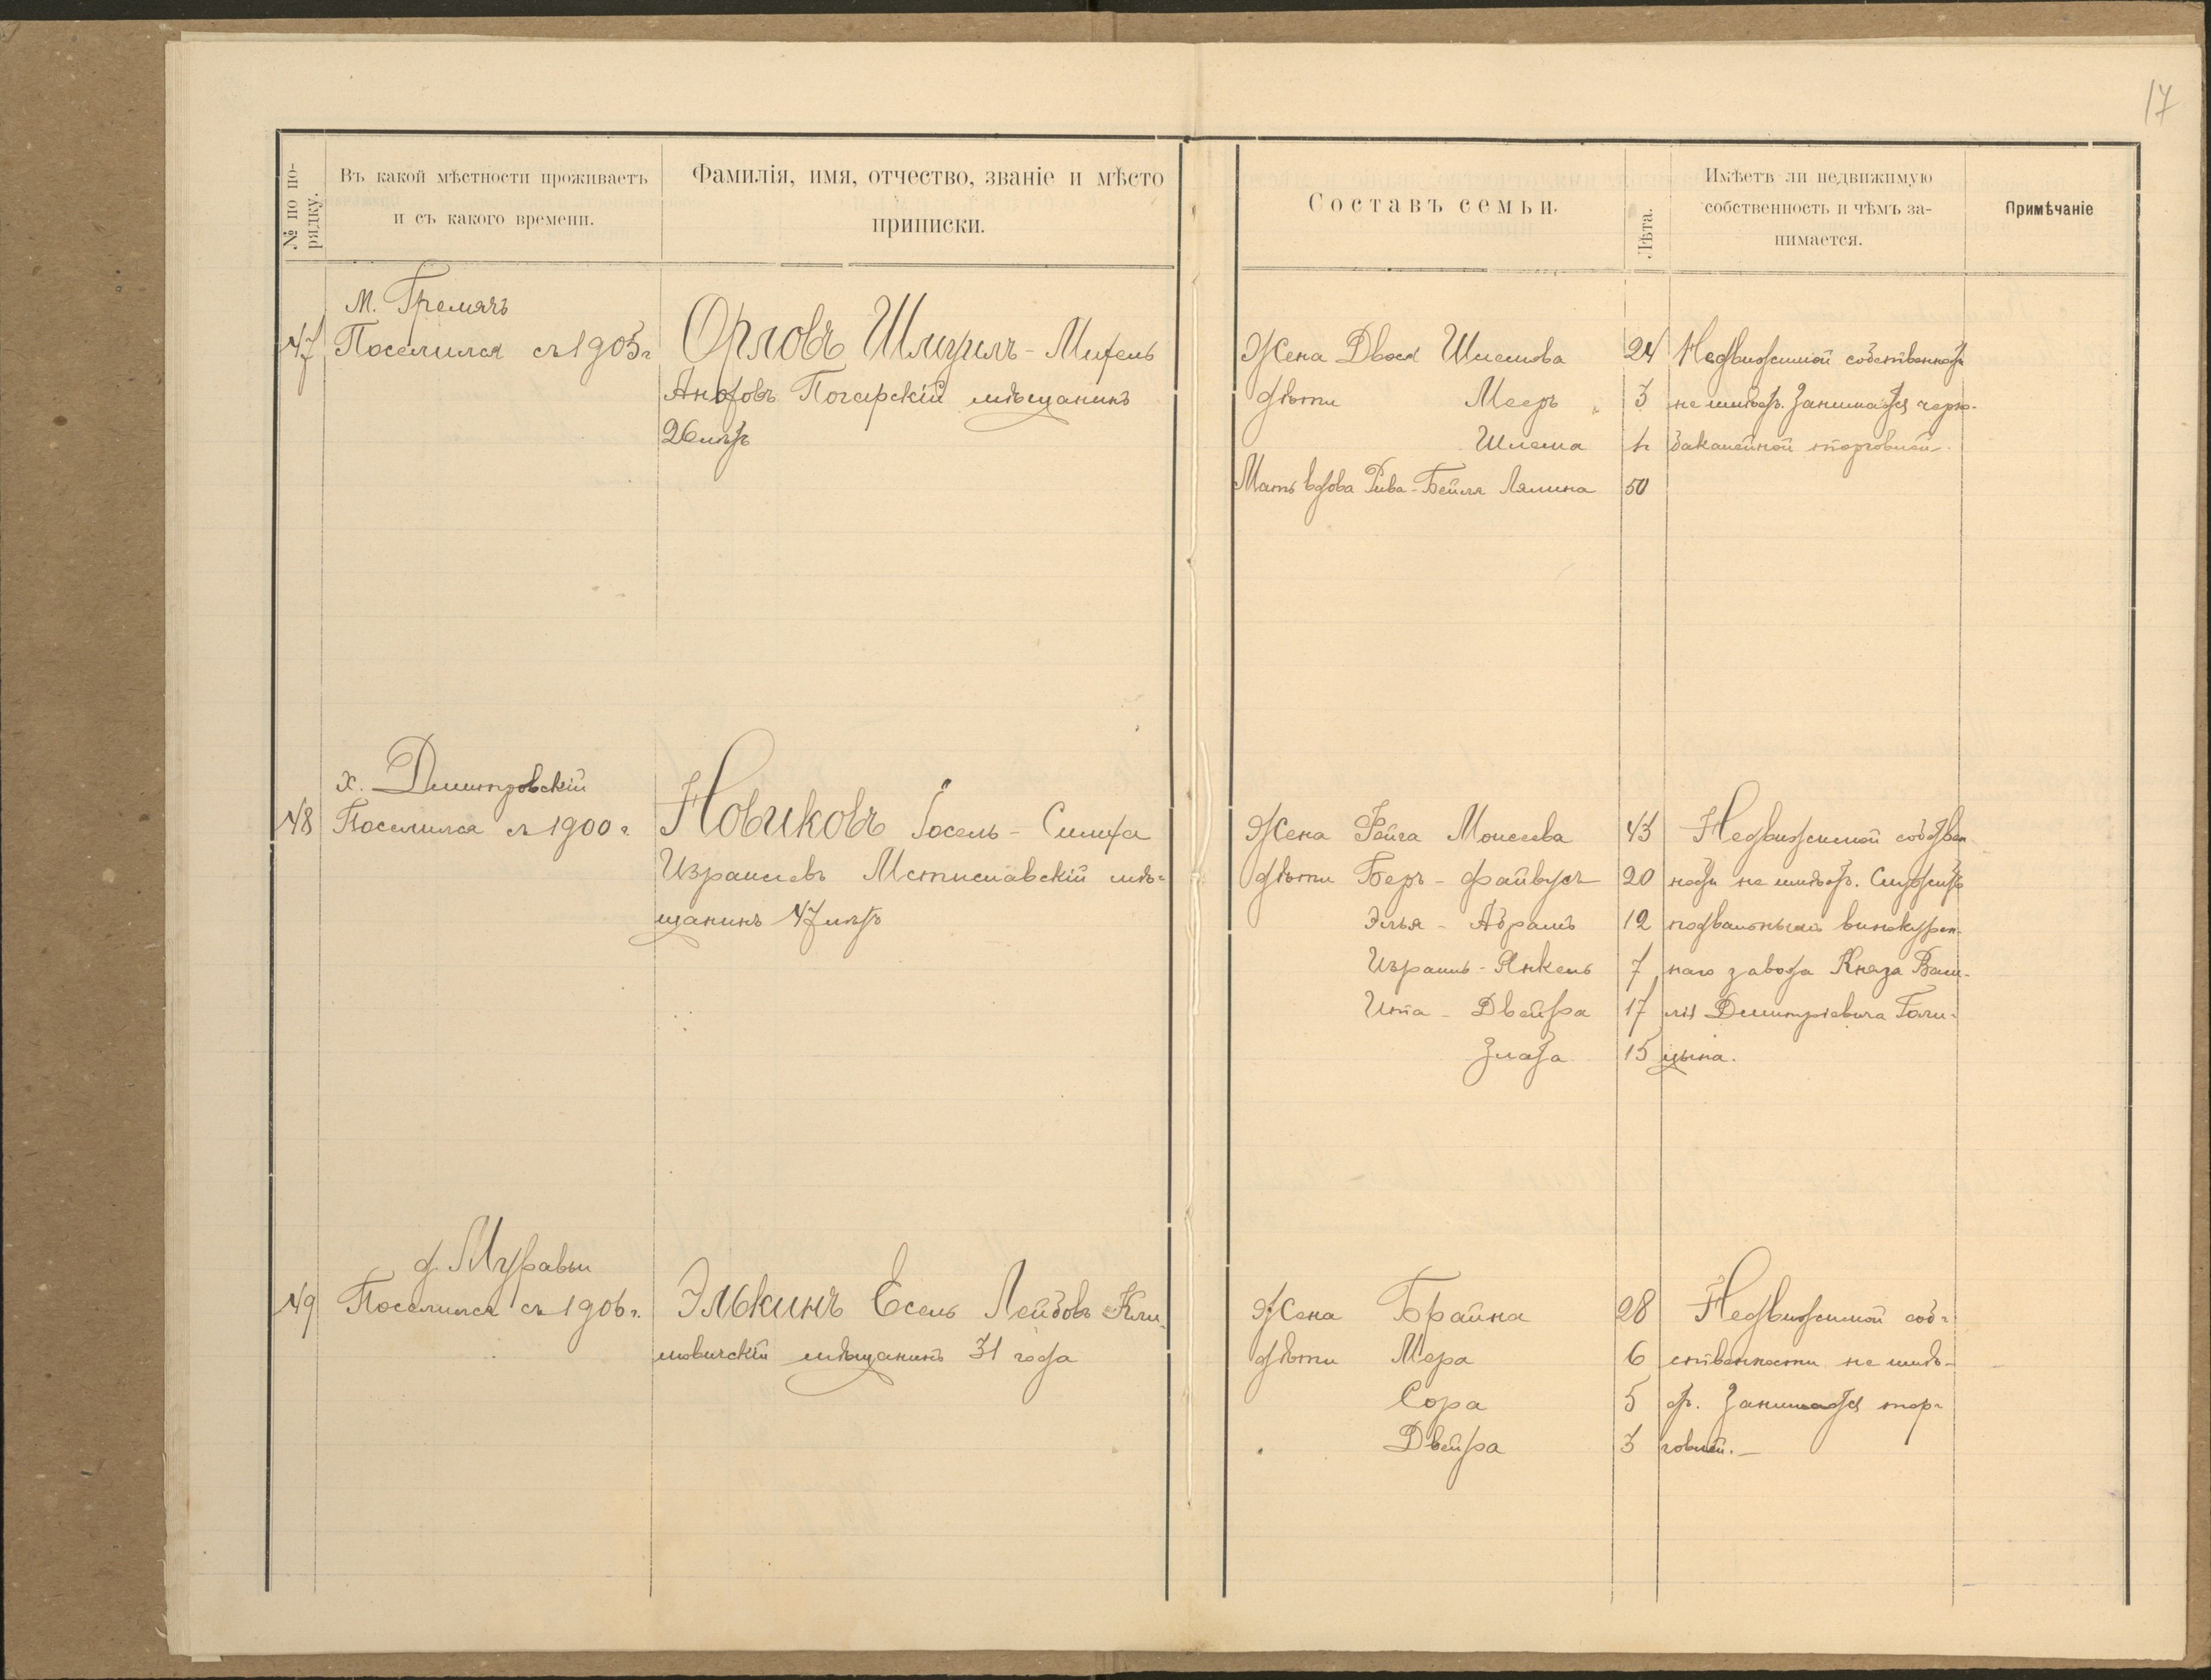 17
№ по по-
рядку.
Въ какой мѣстности проживаетъ
и съ какого времени.
Фамилія, имя, отчество, званіе и мѣсто
приписки.
Составъ семьи.
Лѣта.
Имѣетъ ли недвижимую
собственность и чѣмъ за-
нимается.
Примѣчаніе
м. Гремячъ
47 Поселился съ 1905 г
Орловъ Шмуилъ-
Погарскій мѣщанинъ
26 лѣтъ
Жена Двося Шлемова 24
дѣти Мееръ 3
Шлема
Мать вдова Рива-Бейля 50
Недвижимой собственности
не имѣетъ. Занимается
бакалейной торговлей.
х. Дмитровскій
48 Поселился съ 1900 г.
Новиковъ Іосель-Симха
Израилевъ Мстиславскій мѣ-
щанинъ 47 лѣтъ
Жена Фейга Моисеева 43
дѣти Беръ-Файвусъ 20
Элья-Абрамъ 12
Израиль-Янкель 7
Ита-Двейра 17
Злата 15
Недвижимой собствен
ности не имѣетъ. Служитъ
подвальнымъ винокурен-
наго завода Князя Васи-
лія Димитріевича Голи-
цына.
д. Муравьи
49 Поселился съ 1906 г.
Элькинъ Есель Лейбовъ Кли-
мовичскій мѣщанинъ 31 года
Жена Брайна 28
дѣти Мера 6
Сора 5
Двейра 3
Недвижимой соб-
ственности не имѣ-
тъ. Занимается тор-
говлей.—